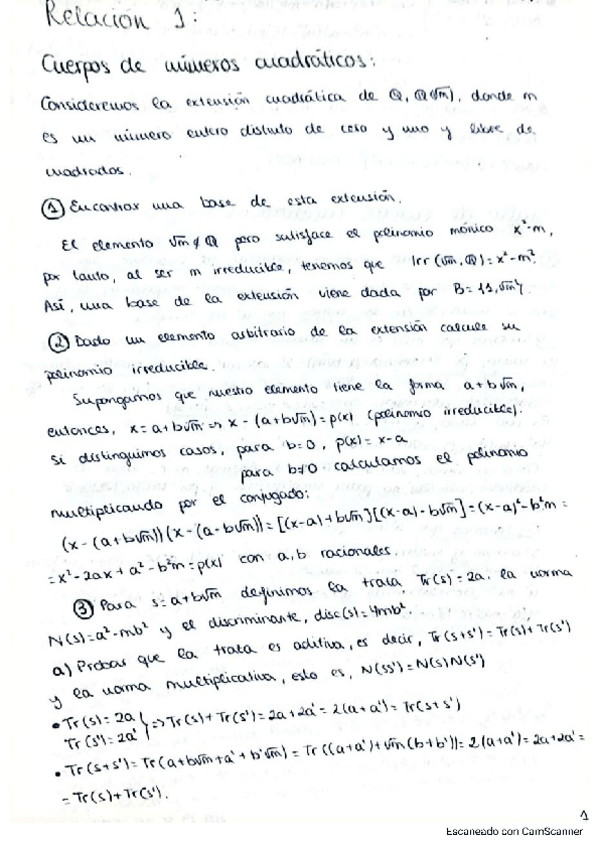 Relación 1:
Cuerpos de números cuadráticos:
Consideremos la extensión cuadrática de ℚ, ℚ(√m), donde m
es un número entero distinto de cero y uno y libre de
cuadrados.
① Encontrar una base de esta extensión.
El elemento √m ∉ ℚ pero satisface el polinomio mónico x²-m,
por tanto, al ser m irreducible, tenemos que Irr(√m, ℚ) = x²-m².
Así, una base de la extensión viene dada por B = {1, √m}.
② Dado un elemento arbitrario de la extensión calcule su
polinomio irreducible.
Supongamos que nuestro elemento tiene la forma a+b√m,
entonces, x = a+b√m => x - (a+b√m) = p(x) (polinomio irreducible).
Si distinguimos casos, para b=0, p(x) = x-a
para b≠0 calculamos el polinomio
multiplicando por el conjugado:
(x - (a+b√m))(x - (a-b√m)) = [(x-a)+b√m][(x-a)-b√m] = (x-a)²-b²m =
= x²-2ax+a²-b²m = p(x) con a,b racionales.
③ Para s = a+b√m definimos la traza Tr(s) = 2a. la norma
N(s) = a²-mb² y el discriminante, disc(s) = 4mb².
a) Probar que la traza es aditiva, es decir, Tr(s+s') = Tr(s)+Tr(s')
y la norma multiplicativa, esto es, N(ss') = N(s)N(s')
• Tr(s) = 2a } => Tr(s)+Tr(s') = 2a+2a' = 2(a+a') = Tr(s+s')
Tr(s') = 2a'
• Tr(s+s') = Tr(a+b√m+a'+b'√m) = Tr((a+a')+√m(b+b')) = 2(a+a') = 2a+2a' =
= Tr(s)+Tr(s').
1
Escaneado con CamScanner